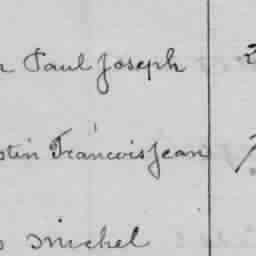 Paul Joseph
stin Francois Jean
Michel